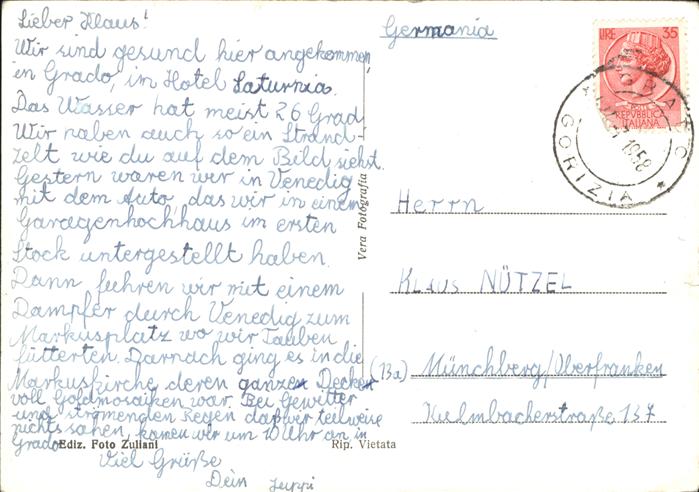 Lieber Klaus!
Wir sind gesund hier angekommen,
in Grado, im Hotel Saturnia.
Das Wasser hat meist 26 Grad
Wir haben auch so ein Strand-
zelt wie du auf dem Bild siehst.
Gestern waren wir in Venedig
mit dem Auto, das wir in einem
Garagenhochhaus im ersten
Stock untergestellt haben.
Dann fuhren wir mit einem
Dampfer durch Venedig zum
Markusplatz wo wir Tauben
fütterten. Darnach ging es in die
Markuskirche deren ganze Decke
voll Goldmosaiken war. Bei Gewitter
und strömenden Regen daß wir teilweise
nichts sahen, kamen wir um 10 Uhr an in
Grado.
Viel Grüße
Dein
Ediz. Foto Zuliani
Rip. Vietata
Vera Fotografia
Germania
LIRE 35
REPVBBLICA
ITALIANA
1958
GORIZIA
Herrn
KLAUS NÜTZEL
(13a) Münchberg/Oberfranken
Kulmbacherstraße 137